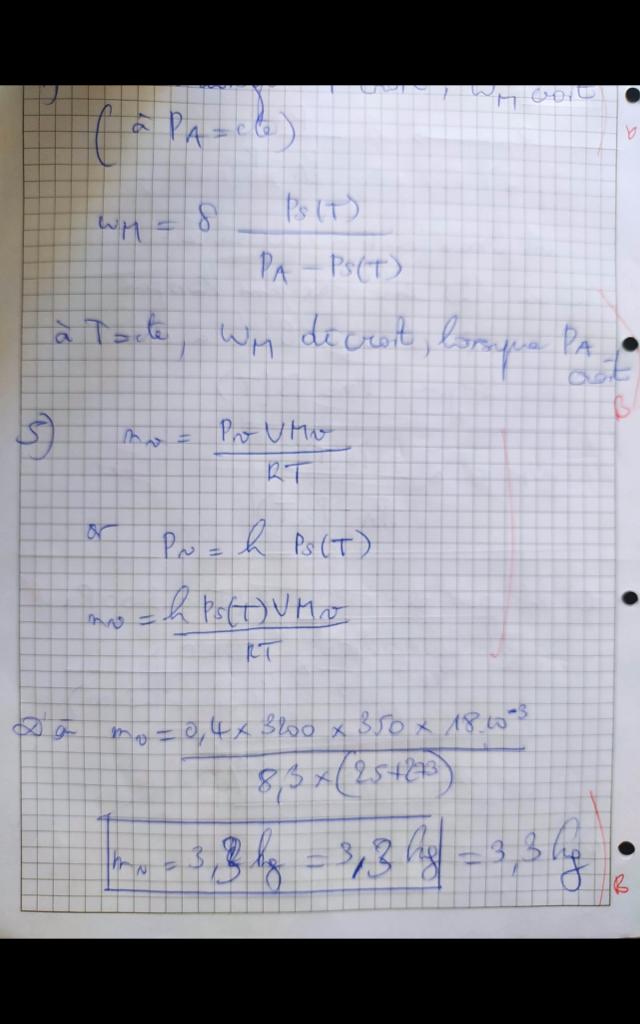 w_M croît
(à P_A = cte)
w_M = δ Ps(T) / (P_A - Ps(T))
à T = cte, w_M décroît, lorsque P_A
croît
B
5) m_v = P_v V M_v / RT
or P_v = h Ps(T)
m_v = h Ps(T) V M_v / RT
m_v = 0,4 x 3200 x 350 x 18.10^-3 / 8,3 x (25+273)
m_v = 3,3 kg = 3,3 kg = 3,3 kg
B